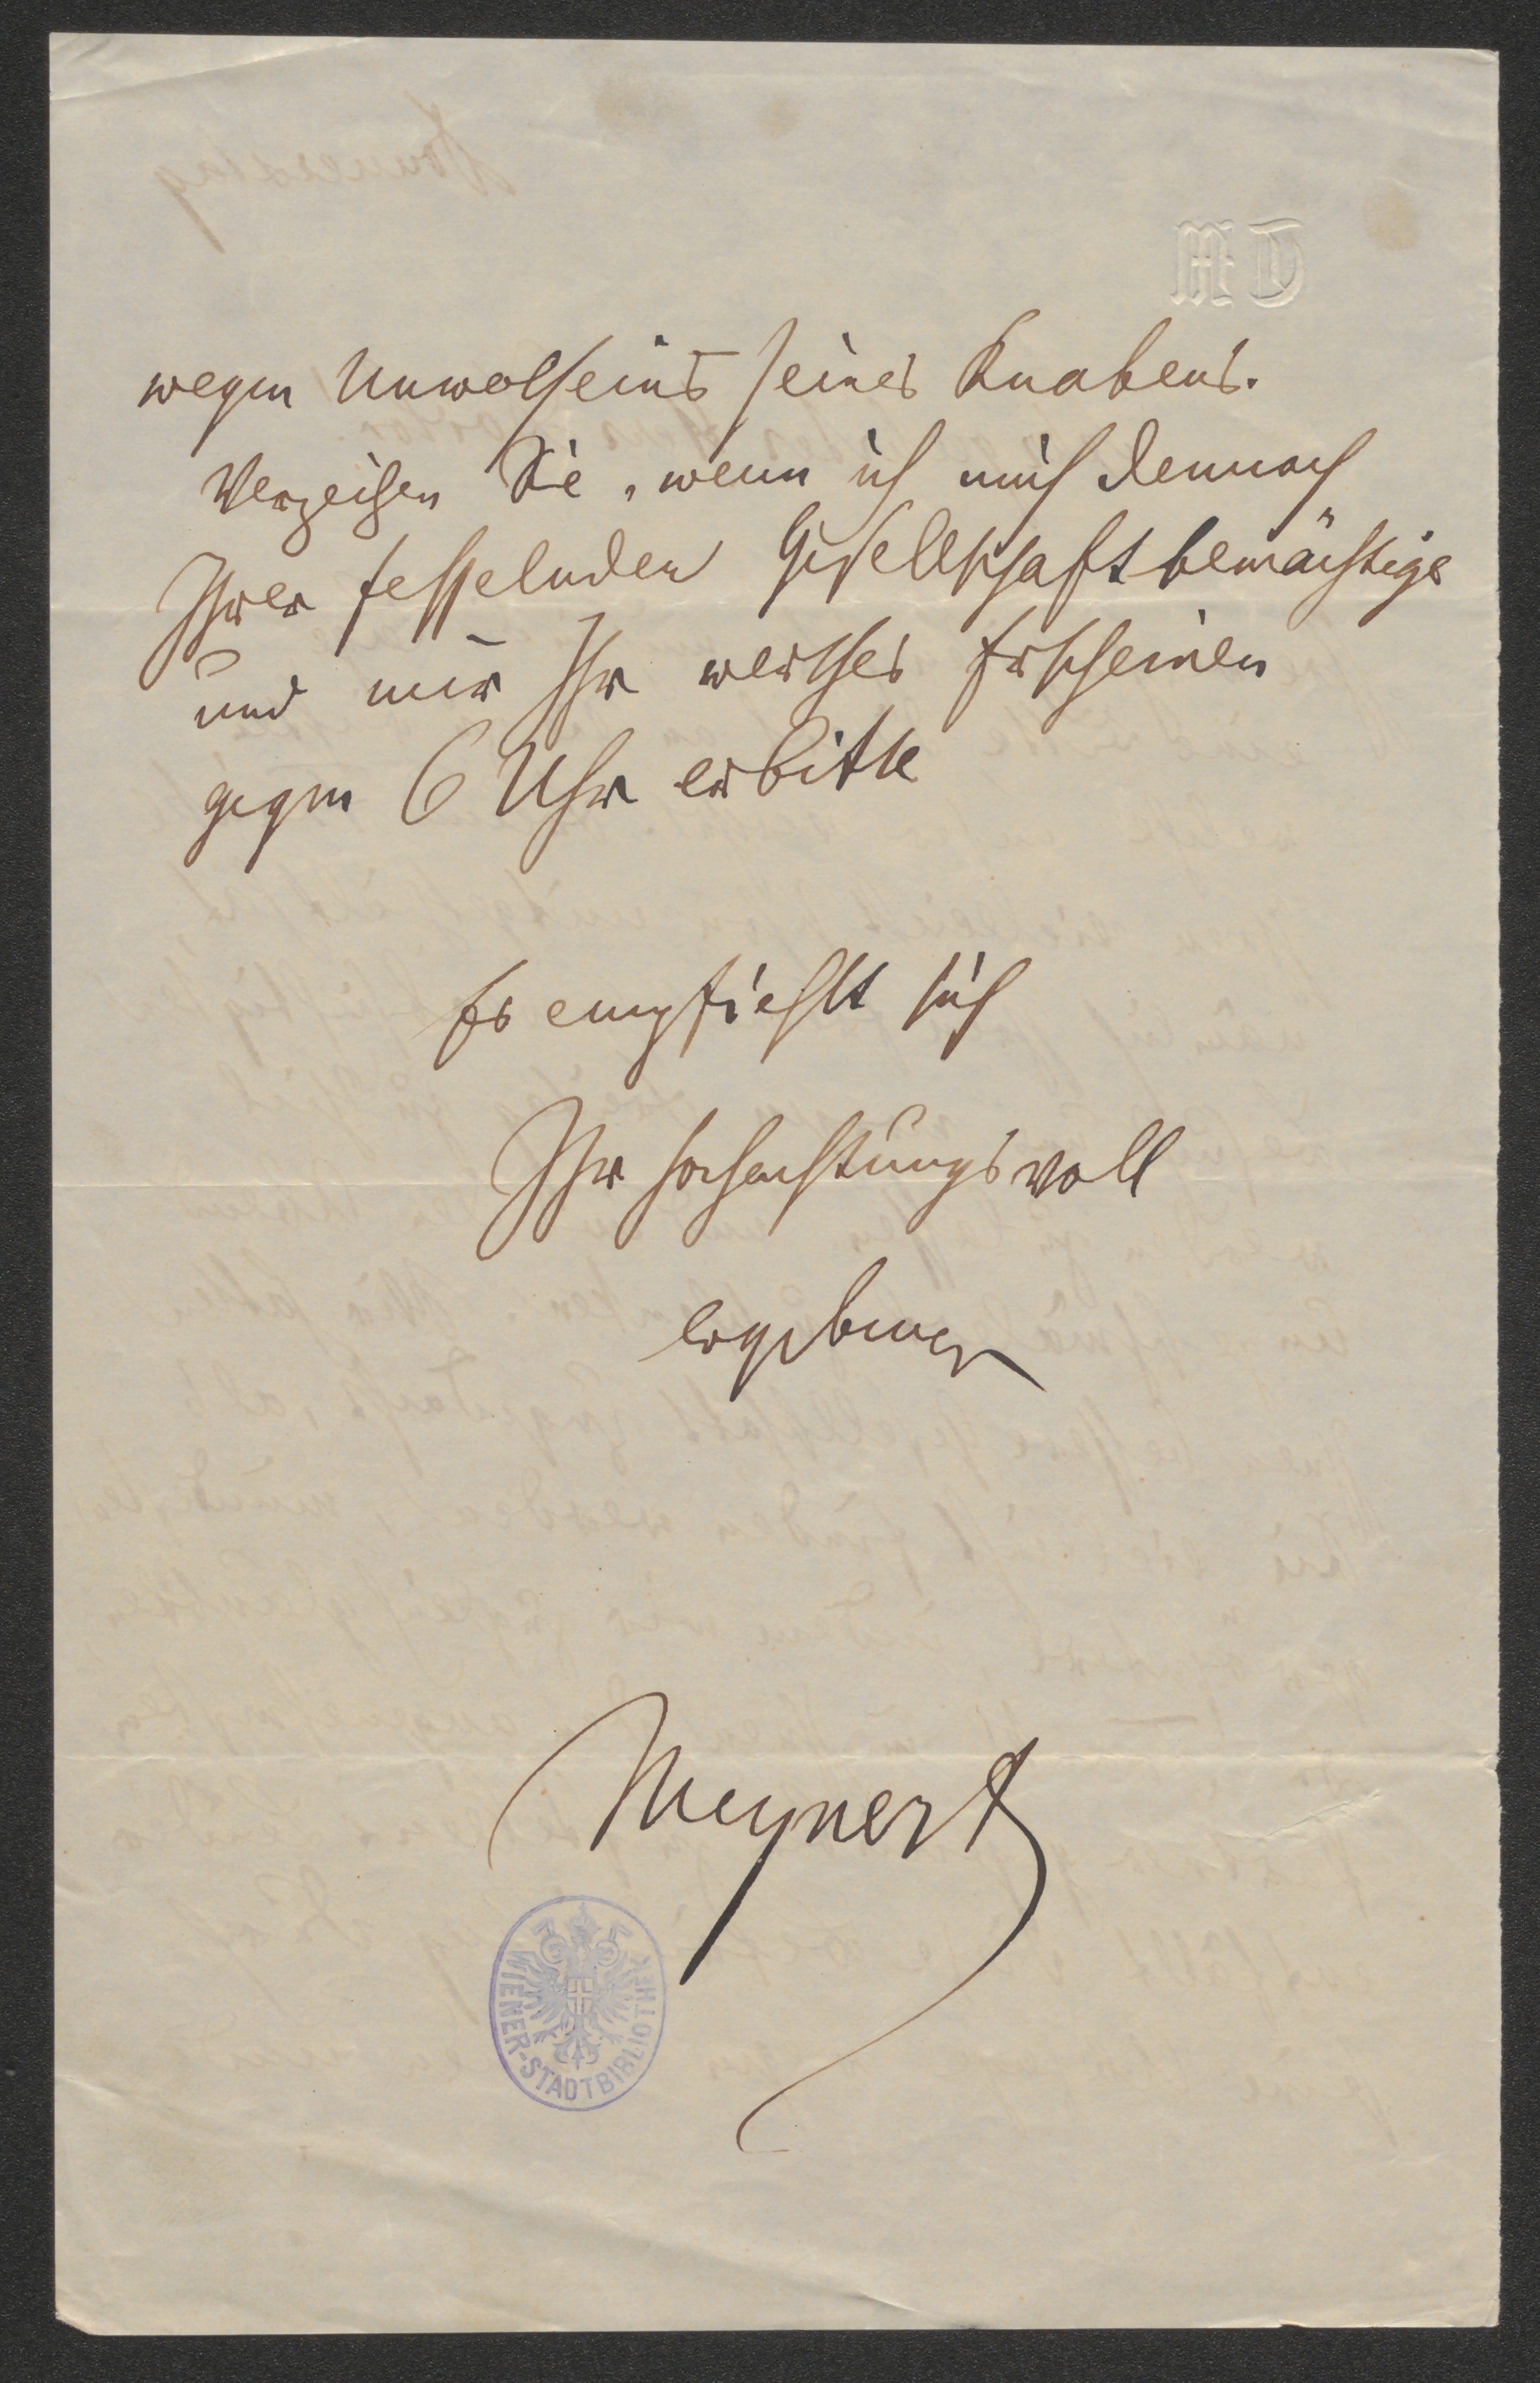 wegen Unwolseins seines Knabens.
Verzeihen Sie, wenn ich mich dennoch
Ihrer fesselnden Gesellschaft bemächtige
und mir Ihr werthes Erscheinen
gegen 6 Uhr erbitte
Es empfiehlt sich
Ihr hochachtungsvoll
ergebener
Meynert
WIENER-STADTBIBLIOTHEK